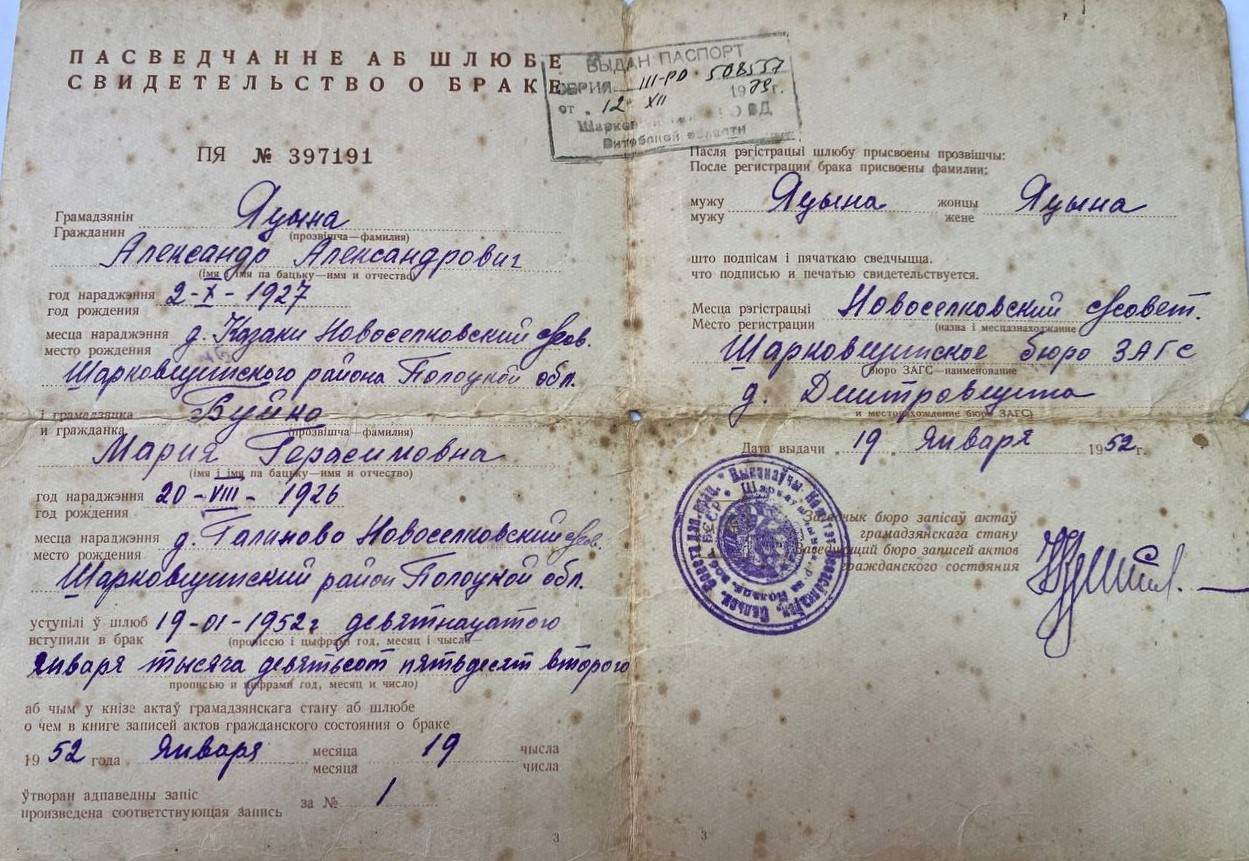 ПАСВЕДЧАННЕ АБ ШЛЮБЕ
СВИДЕТЕЛЬСТВО О БРАКЕ
ПЯ № 397191
Грамадзянін
Гражданин
Яцына
(прозвішча—фамилия)
Александр Александрович
(імя і імя па бацьку—имя и отчество)
год нараджэння
год рождения
2-X-1927
месца нараджэння
место рождения
д. Казаки Новоселковский с/сов.
Шарковщинского района Полоцкой обл.
і грамадзянка
и гражданка
Буйно
(прозвішча—фамилия)
Мария Герасимовна
(імя і імя па бацьку—имя и отчество)
год нараджэння
год рождения
20-VIII-1926
месца нараджэння
место рождения
д. Галиново Новоселковский с/сов.
Шарковщинский район Полоцкой обл.
уступілі ў шлюб
вступили в брак
19-01-1952г девятнацатого
(пропіссю і цыфрамі год, месяц і чысло—
января тысяча девятьсот пятьдесят второго
прописью и цифрами год, месяц и число)
аб чым у кнізе актаў грамадзянскага стану аб шлюбе
о чем в книге записей актов гражданского состояния о браке
1952 года Января месяца 19 чысла
месяца числа
ўтворан адпаведны запіс
произведена соответствующая запись
за № 1
3
ВЫДАН ПАСПОРТ
СЕРИЯ III-РО 508557
от 12 XII 1979г.
Витебской области
Пасля рэгістрацыі шлюбу прысвоены прозвішчы:
После регистрации брака присвоены фамилии:
мужу Яцына жонцы Яцына
мужу жене
што подпісам і пячаткаю сведчыцца.
что подписью и печатью свидетельствуется.
Месца рэгістрацыі
Место регистрации
Новоселковский с/совет.
(назва і месцазнаходжанне
Шарковщинское бюро ЗАГС
бюро ЗАГС—наименование
д. Дмитровщина
и местонахождение бюро ЗАГС)
Дата выдачи 19 Января 1952г.
Загадчык бюро запісаў актаў
грамадзянскага стану
Заведующий бюро записей актов
гражданского состояния
3